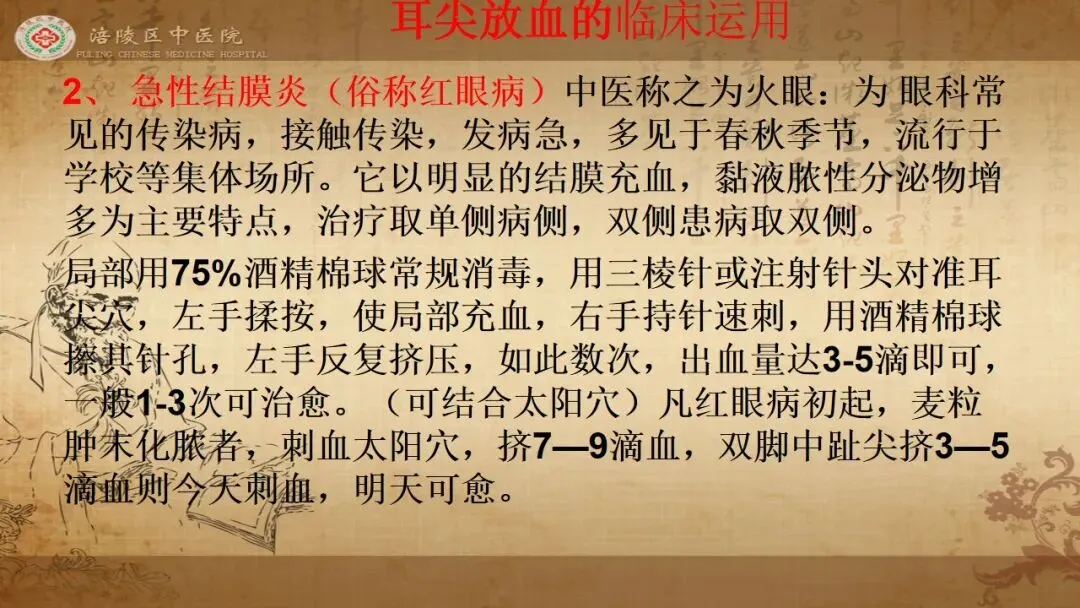 耳尖放血的临床运用
涪陵区中医院
FULING CHINESE MEDICINE HOSPITAL
2、 急性结膜炎（俗称红眼病）中医称之为火眼：为 眼科常
见的传染病，接触传染，发病急，多见于春秋季节，流行于
学校等集体场所。它以明显的结膜充血，黏液脓性分泌物增
多为主要特点，治疗取单侧病侧，双侧患病取双侧。
局部用75%酒精棉球常规消毒，用三棱针或注射针头对准耳
尖穴，左手揉按，使局部充血，右手持针速刺，用酒精棉球
擦其针孔，左手反复挤压，如此数次，出血量达3-5滴即可，
一般1-3次可治愈。（可结合太阳穴）凡红眼病初起，麦粒
肿未化脓者，刺血太阳穴，挤7—9滴血，双脚中趾尖挤3—5
滴血则今天刺血，明天可愈。